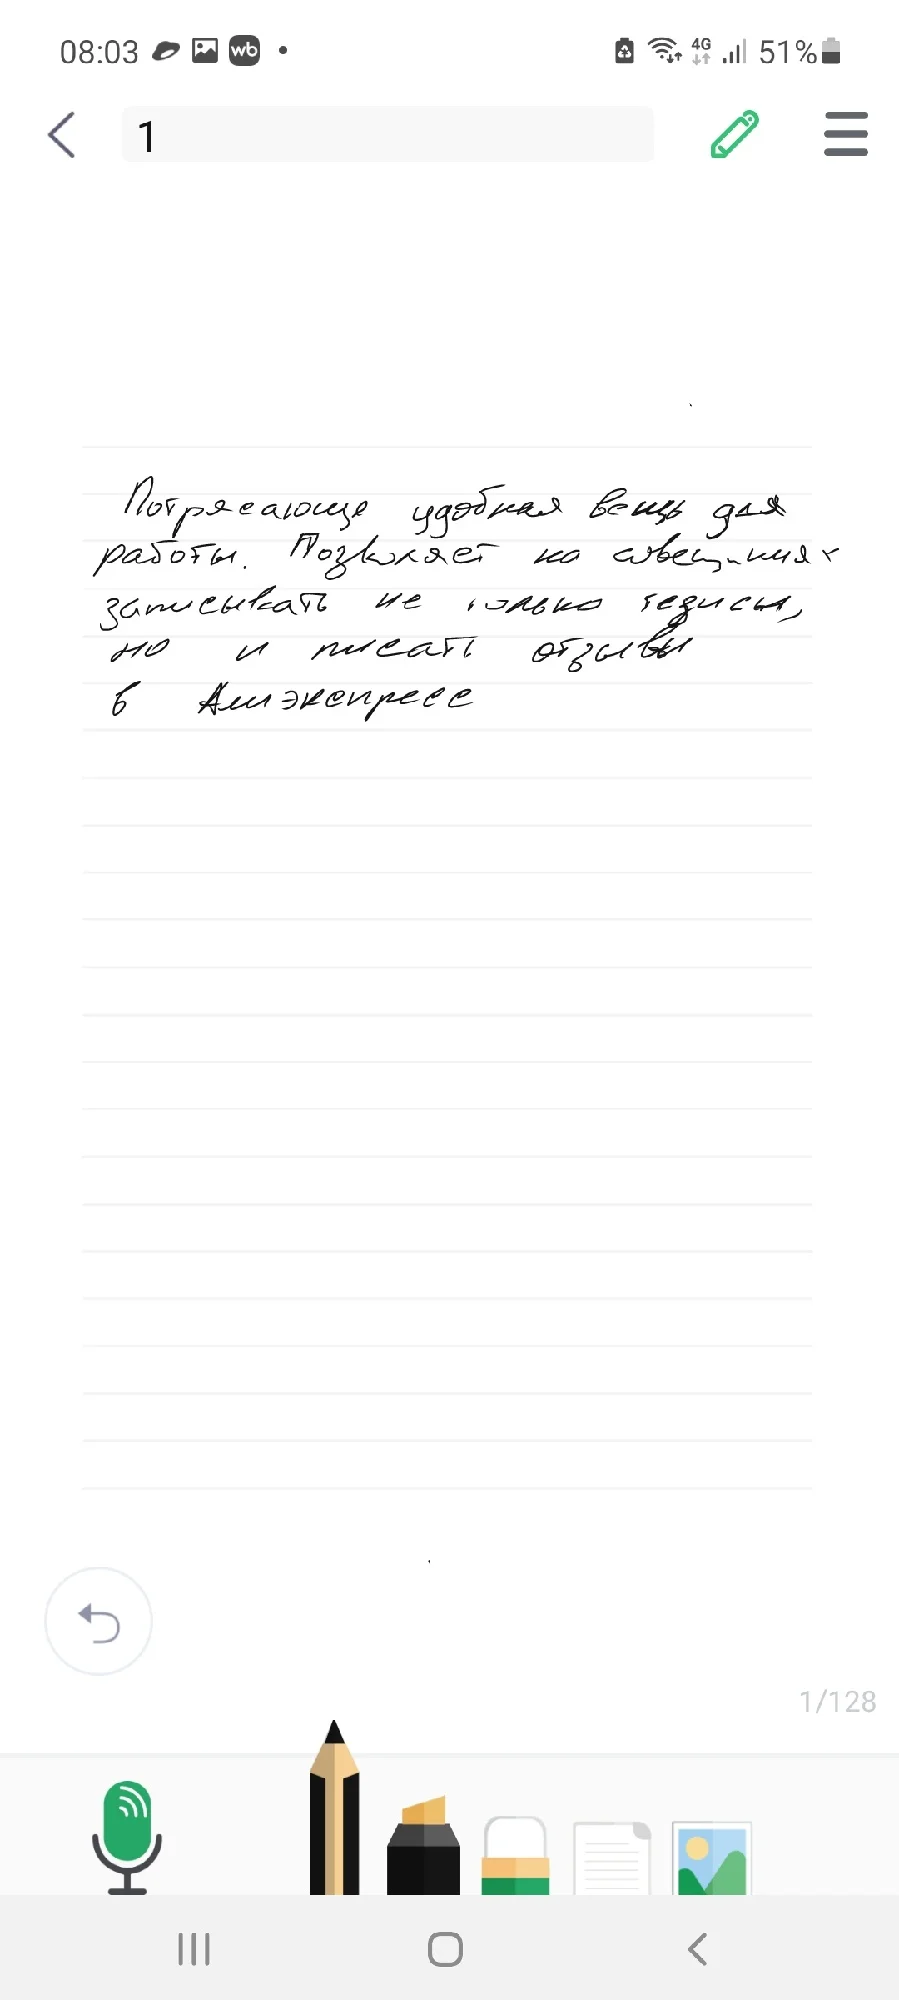 08:03 wb 4G 51%
1
Потрясающе удобная вещь для
работы. Позволяет на совещаниях
записывать не только тезисы,
но и писать отзывы
в Алиэкспресс
1/128